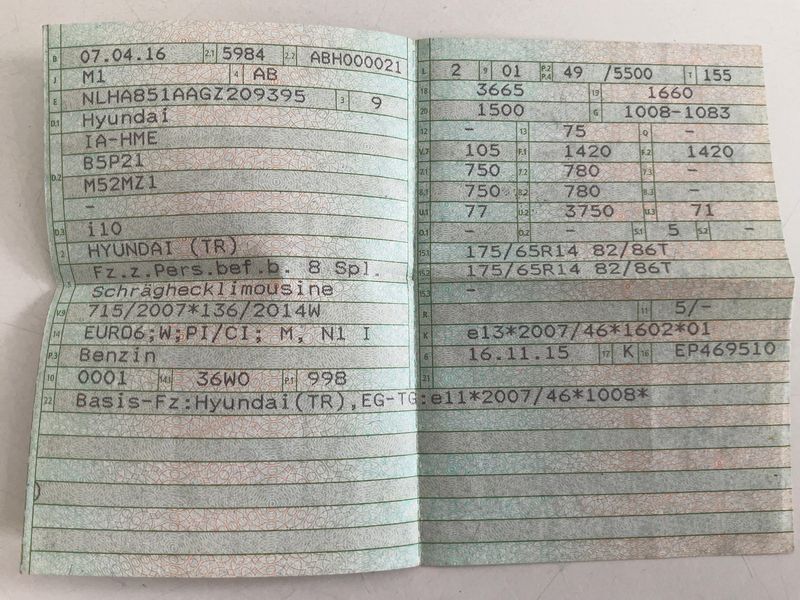 B 07.04.16 2.1 5984 2.2 ABH000021
J M1 4 AB
E NLHA851AAGZ209395 3 9
D.1 Hyundai
IA-HME
B5P21
D.2 M52MZ1
-
D.3 i10
2 HYUNDAI (TR)
Fz.z.Pers.bef.b. 8 Spl.
Schräghecklimousine
V.9 715/2007*136/2014W
14 EURO6;W;PI/CI; M, N1 I
P.3 Benzin
10 0001 14.1 36W0 P.1 998
22 Basis-Fz:Hyundai(TR),EG-TG:e11*2007/46*1008*
L 2 9 01 P.2 P.4 49 /5500 T 155
18 3665 19 1660
20 1500 G 1008-1083
12 - 13 75 Q -
V.7 105 F.1 1420 F.2 1420
7.1 750 7.2 780 7.3 -
8.1 750 8.2 780 8.3 -
U.1 77 U.2 3750 U.3 71
O.1 - O.2 - S.1 5 S.2 -
15.1 175/65R14 82/86T
15.2 175/65R14 82/86T
15.3 -
R 11 5/-
K e13*2007/46*1602*01
6 16.11.15 17 K 16 EP469510
21